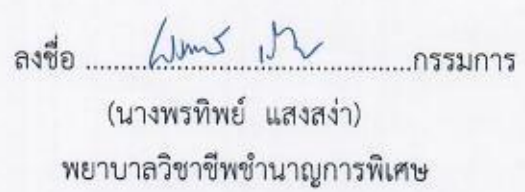 ลงชื่อ ................................................กรรมการ
(นางพรทิพย์ แสงสง่า)
พยาบาลวิชาชีพชำนาญการพิเศษ